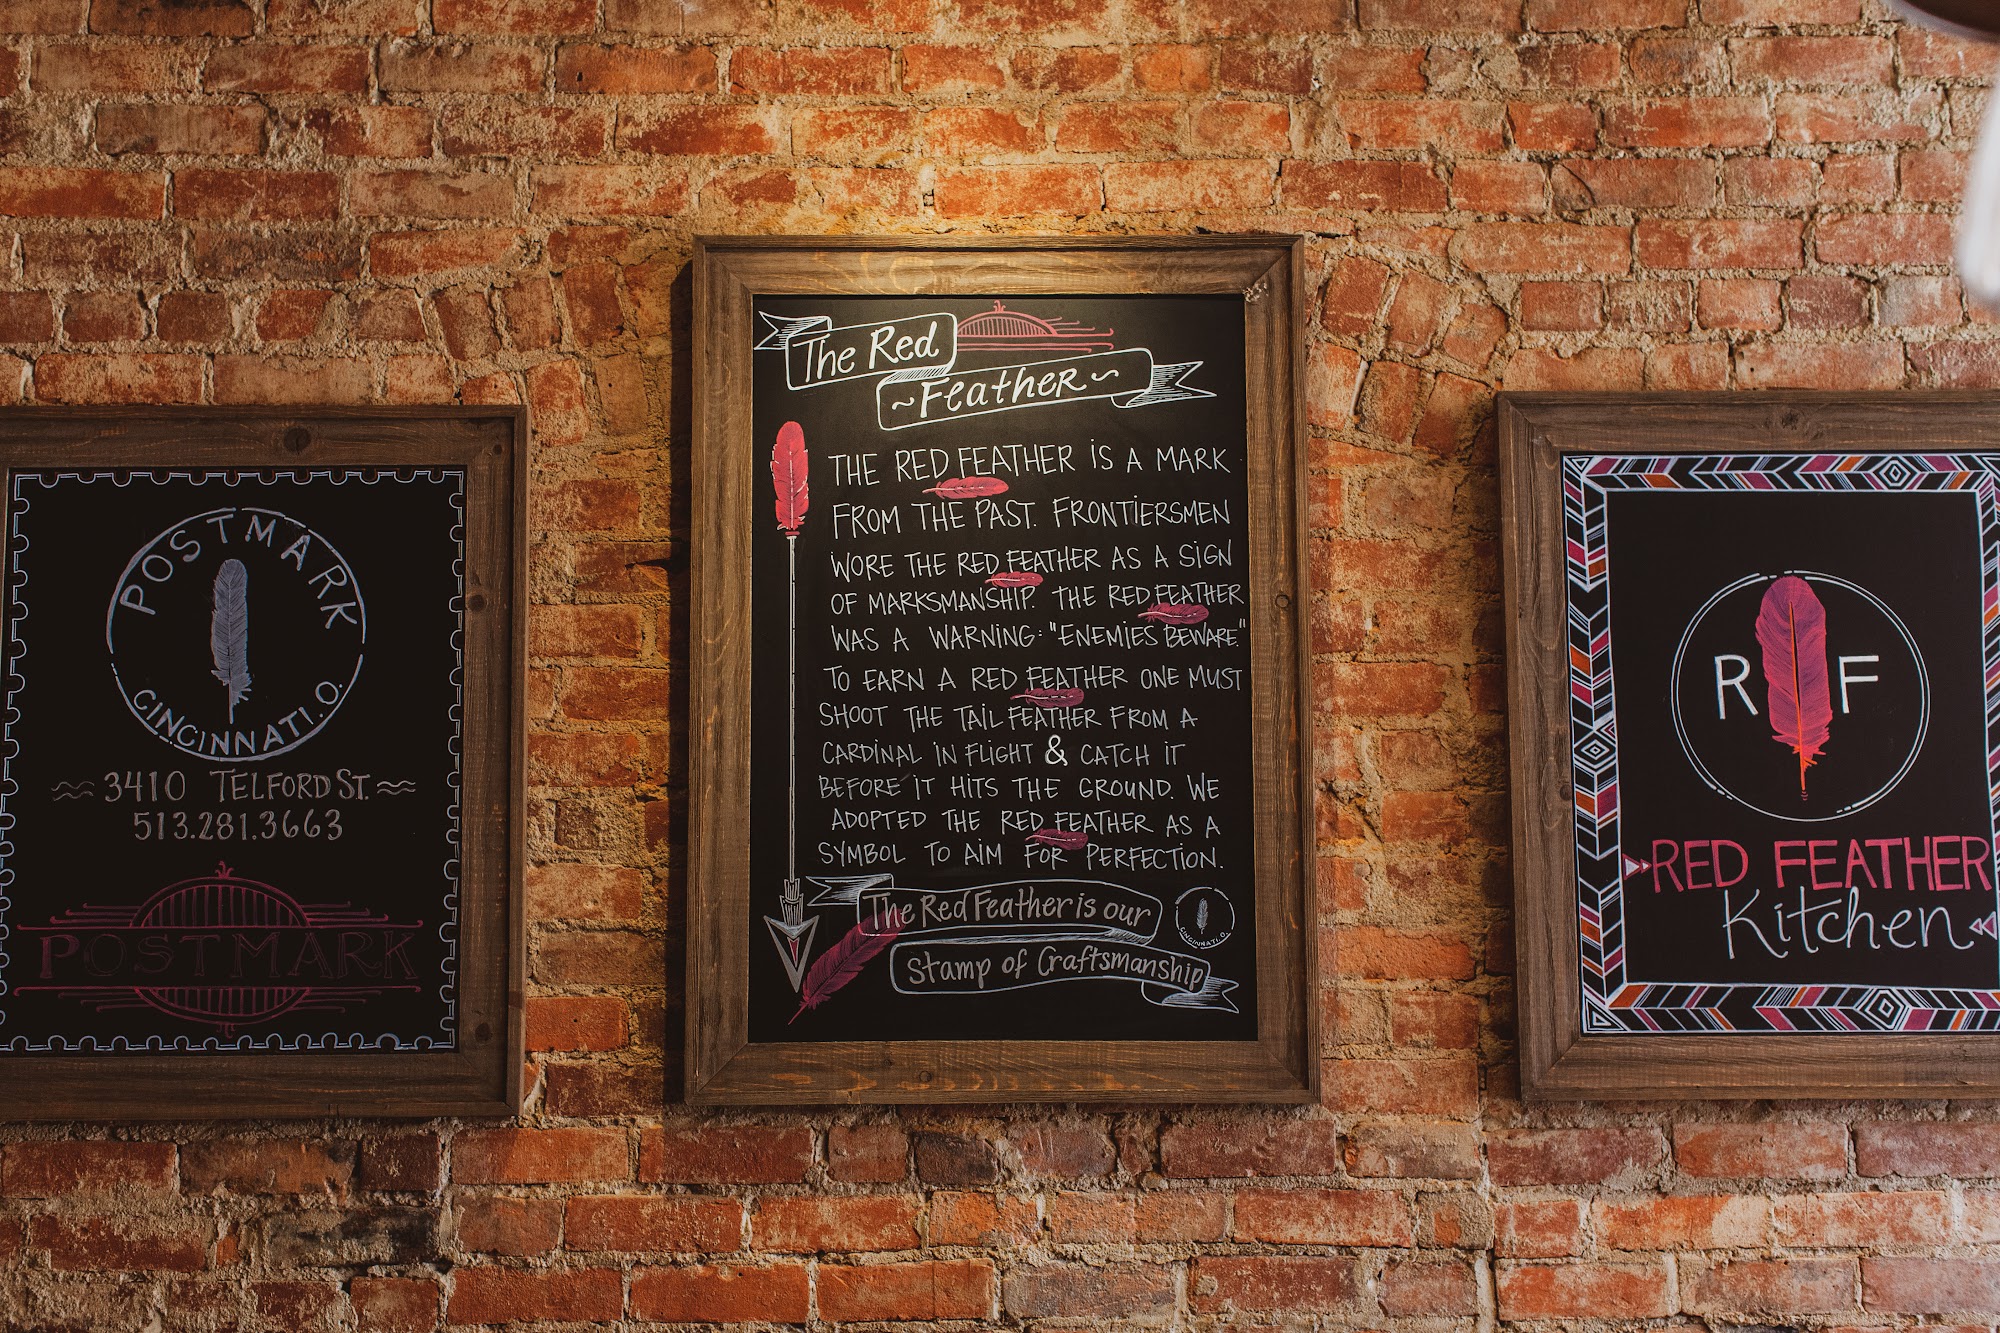 POSTMARK
CINCINNATI. O.
3410 TELFORD ST.
513.281.3663
POSTMARK
The Red
~Feather~
THE RED FEATHER IS A MARK
FROM THE PAST. FRONTIERSMEN
WORE THE RED FEATHER AS A SIGN
OF MARKSMANSHIP. THE RED FEATHER
WAS A WARNING: "ENEMIES BEWARE."
TO EARN A RED FEATHER ONE MUST
SHOOT THE TAIL FEATHER FROM A
CARDINAL IN FLIGHT & CATCH IT
BEFORE IT HITS THE GROUND. WE
ADOPTED THE RED FEATHER AS A
SYMBOL TO AIM FOR PERFECTION.
The Red Feather is our
Stamp of Craftsmanship
CINCINNATI. O.
R F
RED FEATHER
Kitchen